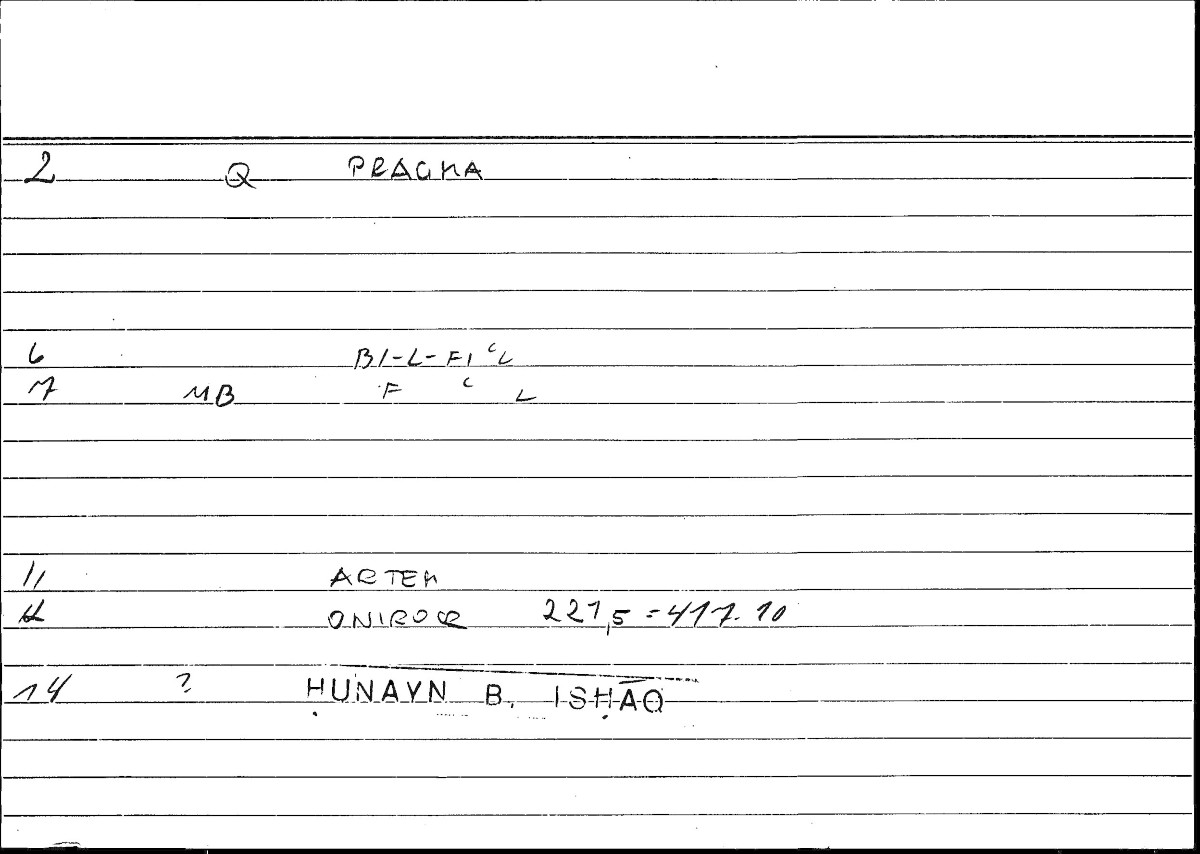 2 Q PRAGMA
6 BI-L-FIʿL
7 MB F ʿ L
11 ARTEM
12 ONIROCR 221,5 = 417.10
14 ? ḤUNAYN B. ISḤĀQ